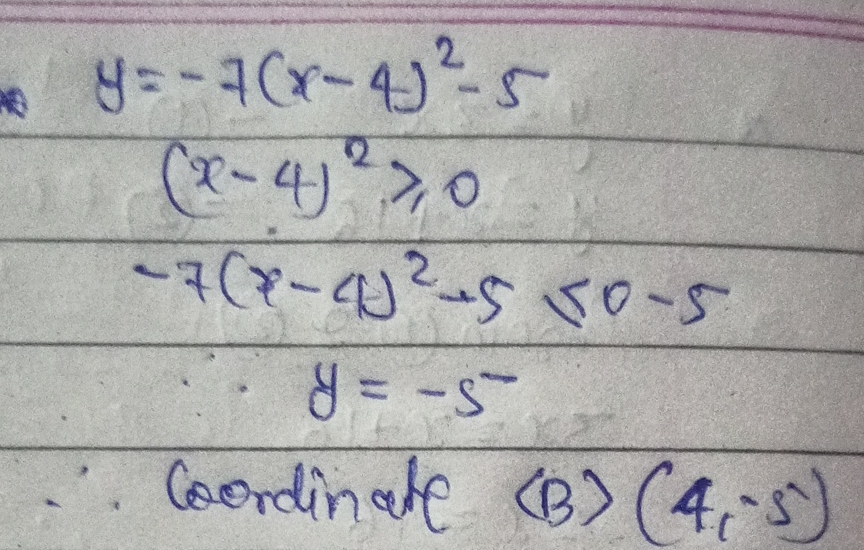 y = -7(x-4)² - 5
(x-4)² ⩾ 0
-7(x-4)² - 5 ⩽ 0 - 5
∴ y = -5
∴ Coordinate <B> (4, -5)